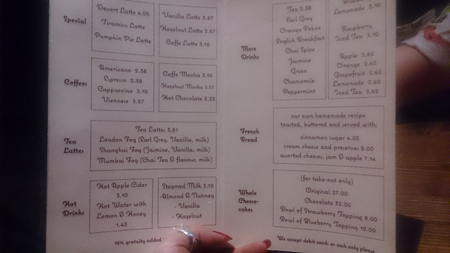 Special
Desert Latte 4.05
Tiramisu Latte
Pumpkin Pie Latte
Vanilla Latte 3.67
Hazelnut Latte 3.67
Caffe Latte 3.10
Coffee:
Americano 2.38
Espresso 2.38
Cappuccino 3.10
Viennese 2.67
Caffe Mocha 3.10
Hazelnut Mocha 3.67
Hot Chocolate 3.33
Tea
Latte:
Tea Latte: 3.81
London Fog (Earl Grey, Vanilla, milk)
Shanghai Fog (Jasmine, Vanilla, milk)
Mumbai Fog (Chai Tea & flavour, milk)
Hot
Drinks
Hot Apple Cider
3.10
Hot Water with
Lemon & Honey
1.43
Steamed Milk 3.10
Almond & Nutmeg
- Vanilla
- Hazelnut
15% gratuity added
More
Drinks:
Tea 2.38
Earl Grey
Orange Pekoe
English Breakfast
Chai Spice
Jasmine
Green
Chamomile
Peppermint
Lemonade 3.10
Raspberry
Iced Tea 3.10
Apple 2.62
Orange 2.62
Grapefruit 2.62
Lemonade 2.62
Iced Tea 2.62
French
Bread:
our own homemade recipe
toasted, buttered and served with:
cinnamon sugar 4.52
cream cheese and preserve: 5.00
assorted cheese, jam & apple 7.14
Whole
Cheese-
cakes:
(for take-out only)
Original 27.00
Chocolate 32.00
Bowl of Strawberry Topping 8.00
Bowl of Blueberry Topping 10.00
We accept debit cards or cash only please